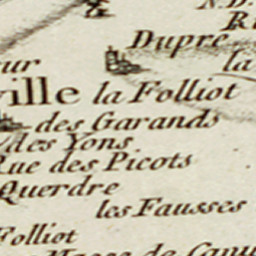 N.D.
Dupre
la
ur
ville la Folliot
des Garands
des Yons
Rue des Picots
Querdre
les Fausses
Folliot
de Canu